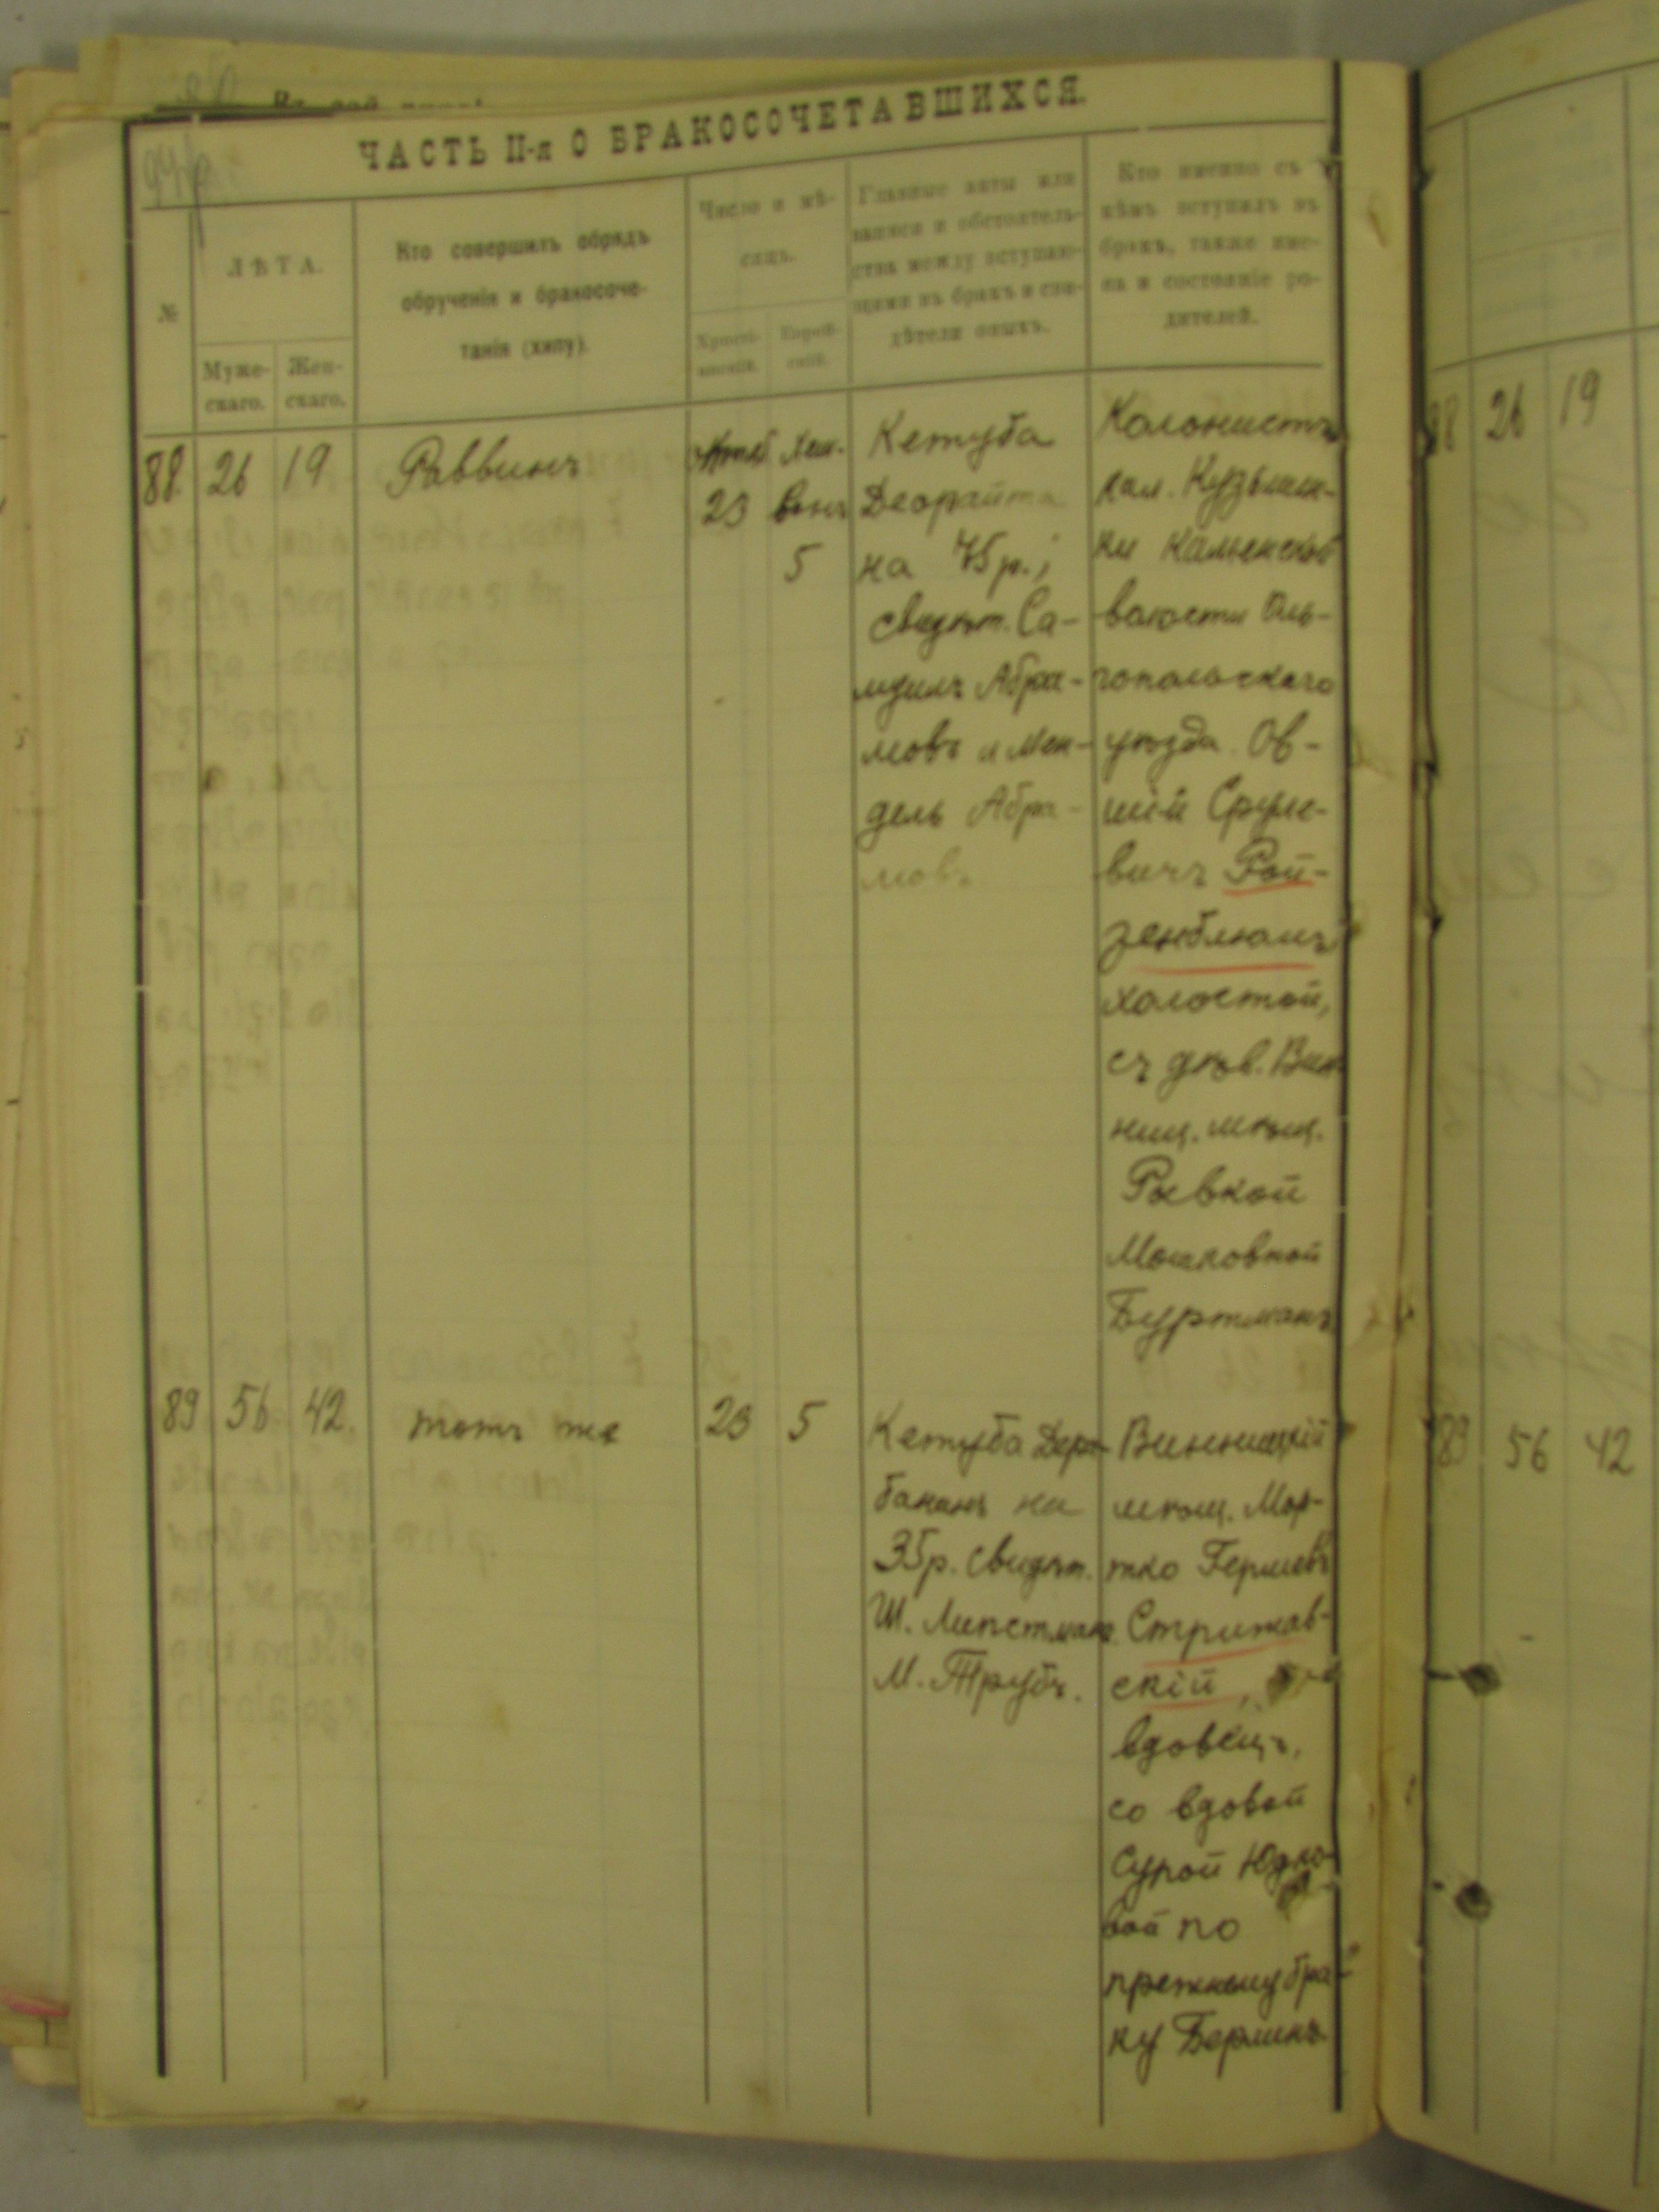 ЧАСТЬ II-я О БРАКОСОЧЕТАВШИХСЯ.
№
ЛѢТА.
Муже-
скаго.
Жен-
скаго.
Кто совершилъ обрядъ
обрученія и бракосоче-
танія (хипу).
Число и мѣ-
сяцъ.
Христі-
анскій.
Еврей-
скій.
Главные акты или
записи и обстоятель-
ства между вступаю-
щими въ бракъ и сви-
дѣтели оныхъ.
Кто именно съ
кѣмъ вступилъ въ
бракъ, также име-
на и состояніе ро-
дителей.
88 26 19 Раввинъ
23
Хеш-
вонъ
5
Кетуба
Деорайта
на 75 р.;
свидѣт. Са-
муилъ Абра-
мовъ и Мен-
дель Абра-
мовъ
Колонистъ
кол. Кузьмин-
ки Каменской
волости Оль-
гопольскаго
уѣзда Ов-
шій Сруле-
вичъ Рой-
зенблюмъ
холостой,
съ дѣв. Вин-
ниц. мѣщ.
Ривкой
Мошковной
Буртманъ
89 56 42. тотъ же 23 5
Кетуба Дера-
бананъ на
35р. свидѣт.
Ш. Липетманъ
М. Трубъ.
Винницкій
мѣщ. Мор-
тко Гершевъ
Стрижав-
скій,
вдовецъ,
со вдовой
Сурой Юдко-
вой по
прежнему бра-
ку Берлинъ
88 26 19
89 56 42